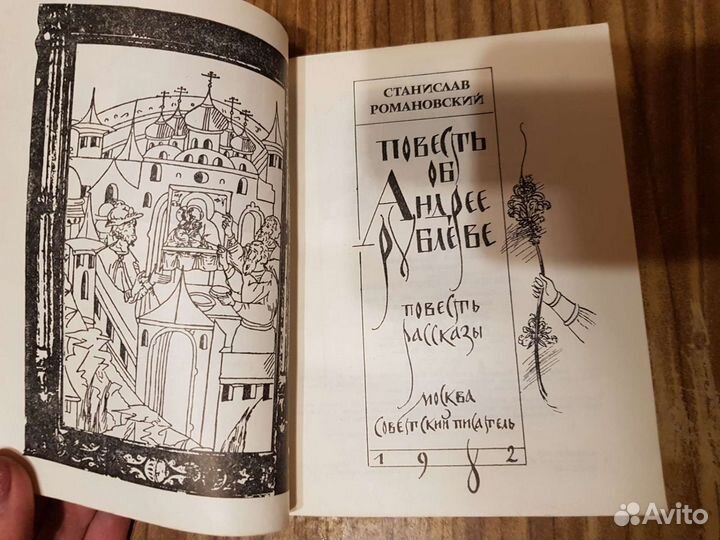 СТАНИСЛАВ
РОМАНОВСКИЙ
ПОВЕСТЬ
ОБ
АНДРЕЕ
РУБЛЕВЕ
ПОВЕСТЬ
РАССКАЗЫ
МОСКВА
СОВЕТСКИЙ ПИСАТЕЛЬ
1982
Avito